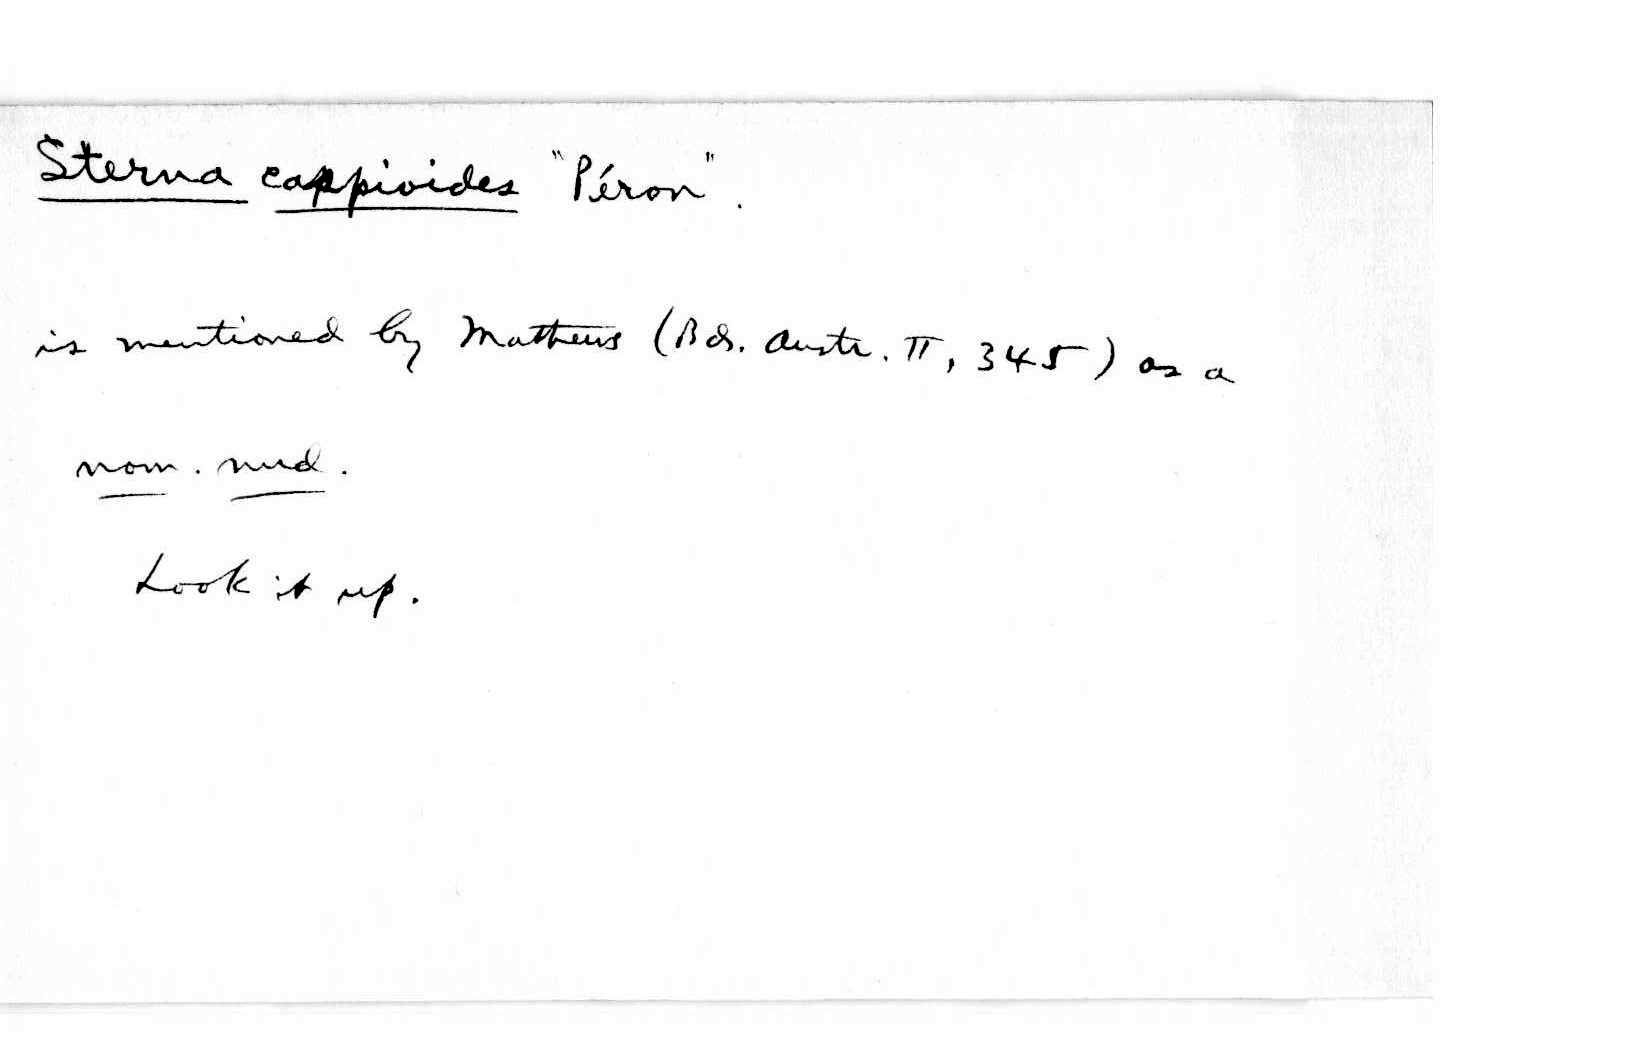 Sterna cappioides "Péron".
is mentioned by Mathews (Bds. Austr. II, 345) as a
nom. nud.
Look it up.